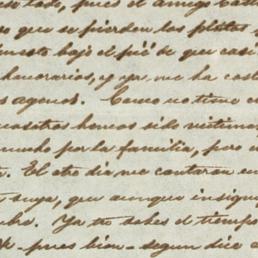 lado, pues el amigo
que se pierden los pleitos y
bajo el pié de que casi
honorarios, y ya me ha cost
agenos. Como no tiene
nosotros hemos sido victimas
mundo por la familia, pero
El otro dia me contaron un
suya, que aunque insign
Ya tu sabes el tiempo
pues bien - segun dice